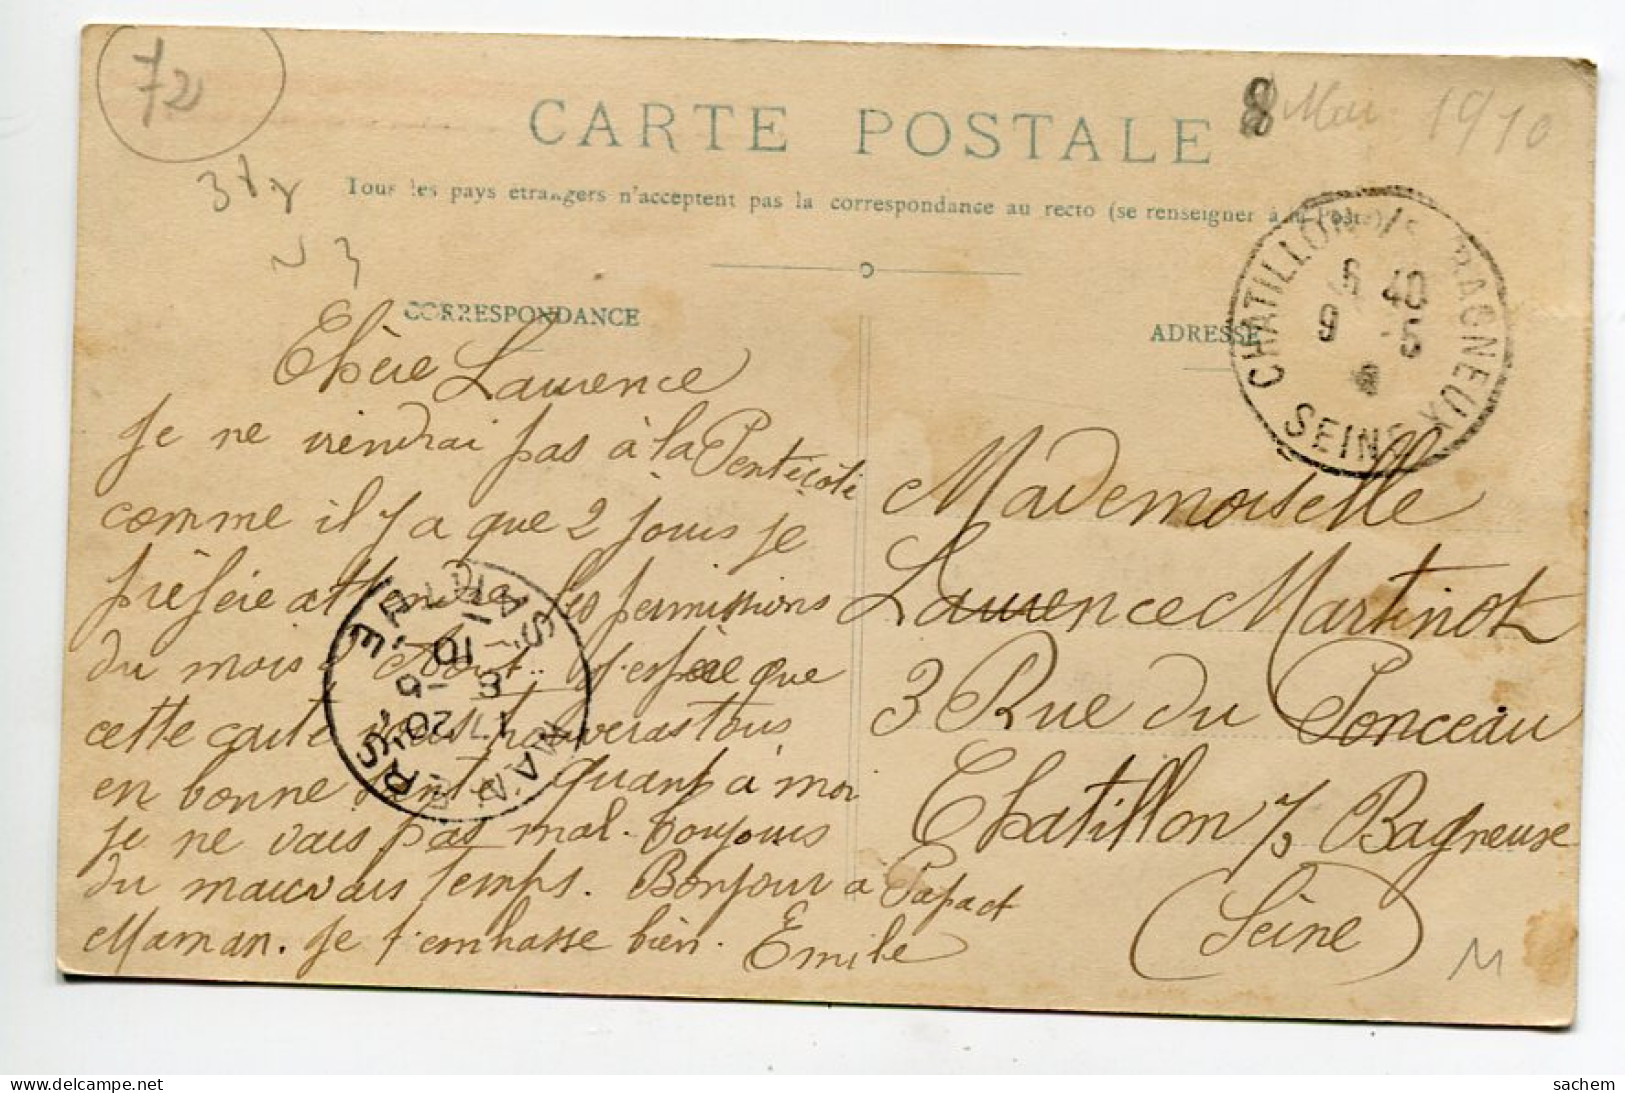 72
8 Mai 1910
CARTE POSTALE
Tous les pays etrangers n'acceptent pas la correspondance au recto (se renseigner à la Poste)
CORRESPONDANCE
Chère Laurence
Je ne viendrai pas à la Pentecôte
comme il y a que 2 jours je
préfère attendre les permissions
du mois d'Aout. J'espère que
cette carte vous trouveras tous
en bonne santé quant à moi
je ne vais pas mal. toujours
du mauvais temps. Bonjour à Papa et
Maman. Je t'embrasse bien. Emile
MAMERS
SARTHE
17 20
8 -5
10
ADRESSE
CHATILLON S/S BAGNEUX
6 40
9 -5
SEINE
Mademoiselle
Laurence Martinot
3 Rue du Ponceau
Chatillon s/s Bagneux
(Seine)
M
delcampe.net
sachem